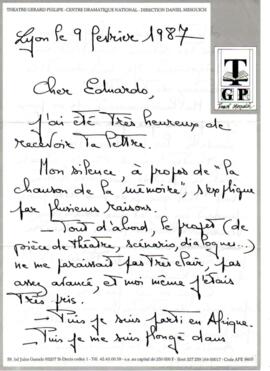 THEATRE GERARD PHILIPE - CENTRE DRAMATIQUE NATIONAL - DIRECTION DANIEL MESGUICH
Lyon le 9 février 1987
T
G P
Cher Eduardo,
j'ai été très heureux de
recevoir ta lettre.
Mon silence, à propos de "la
chanson de la mémoire", s'explique
par plusieurs raisons.
— Tout d'abord, le projet (de
pièce de théâtre, scénario, dialogues...)
ne me paraissait pas très clair, pas
assez avancé, et moi même j'étais
très pris.
— Puis je suis parti en Afrique.
— Puis je me suis plongé dans
59, bd Jules Guesde 93207 St Denis cedex 1 - Tél.